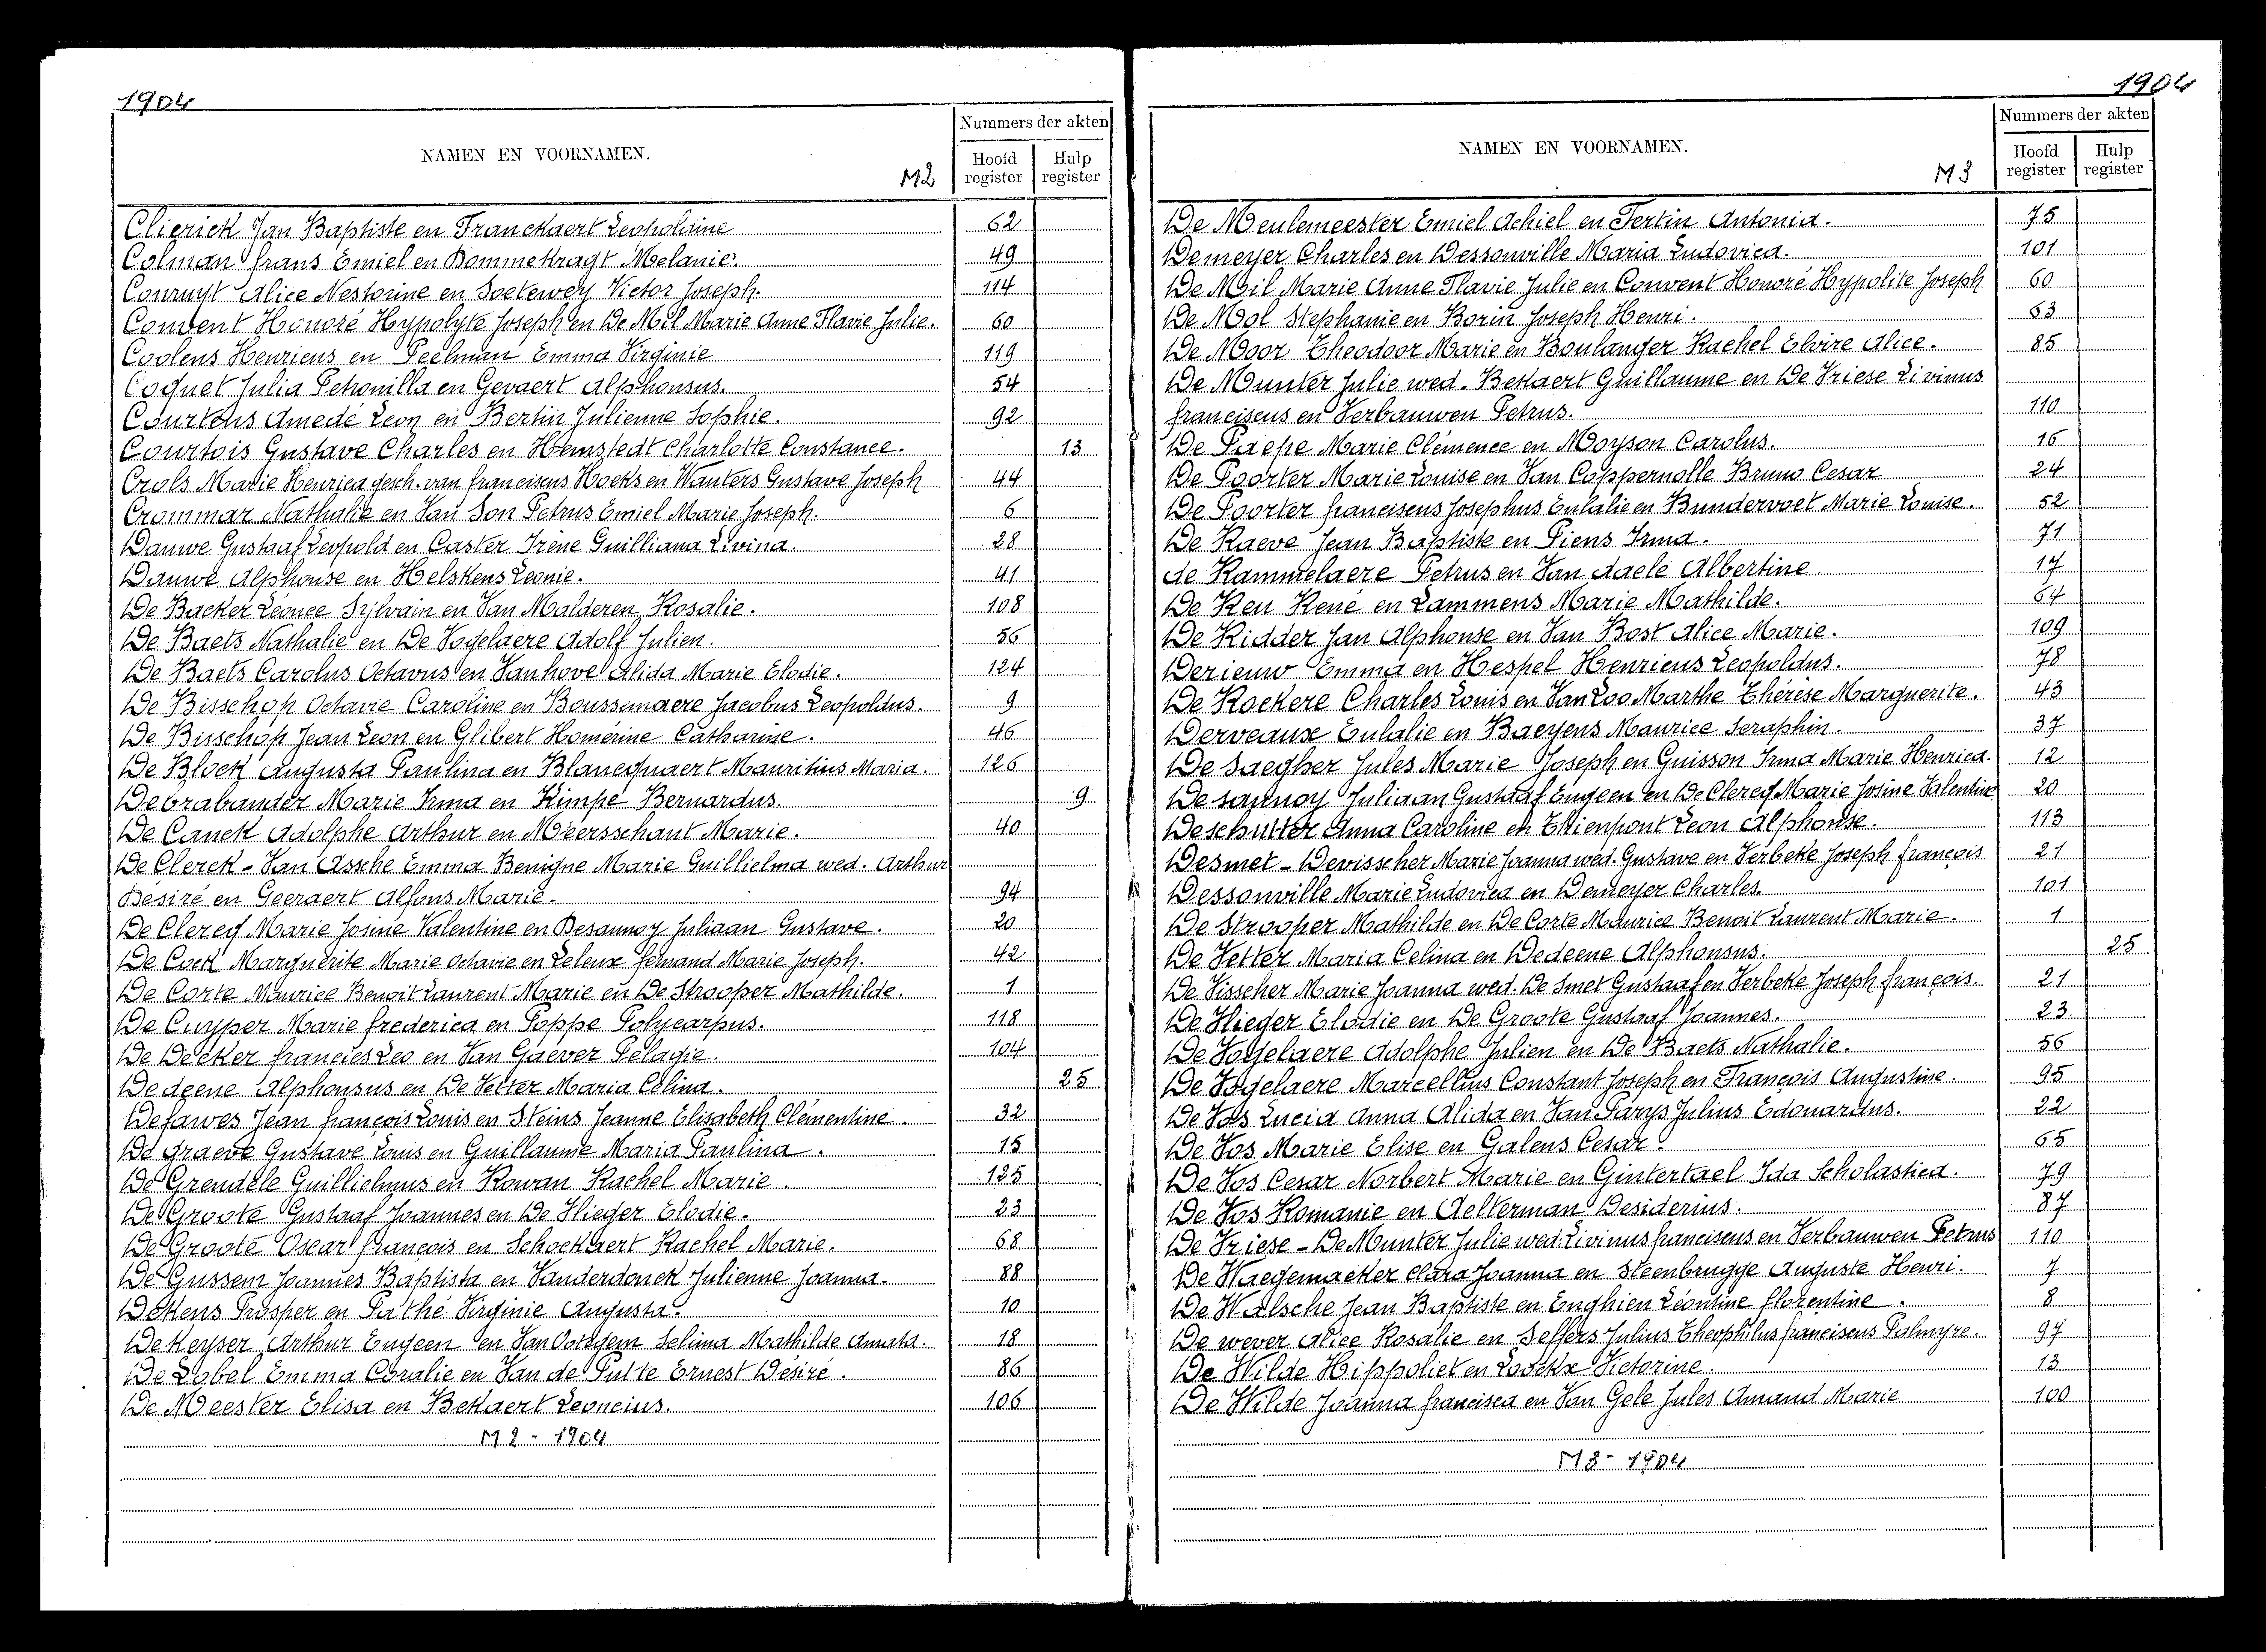 1904
Nummers der akten
NAMEN EN VOORNAMEN.
M2
Hoofd register
Hulp register
Clierick Jan Baptiste en Franckaert Leopoldine 62
Colman frans Emiel en Bommekragt Melanie. 49
Conruyt Alice Nestorine en Soetewey Victor Joseph. 114
Convent Honoré Hypolyte Joseph en De Mil Marie Anne Flavie Julie. 60
Coolens Henricus en Peelman Emma Virginie 119
Coquet Julia Petronilla en Gevaert Alphonsus. 54
Courtens Amedé Leon en Bertin Julienne Sophie. 92
Courtois Gustave Charles en Hemstedt Charlotte Constance. 13
Crols Marie Henrica gesch. van franciscus Hoeks en Wauters Gustave Joseph 44
Crommar Nathalie en Van Son Petrus Emiel Marie Joseph. 6
Dauwe Gustaaf Leopold en Caster Irène Guilliana Livina. 28
Dauwe Alphonse en Helskens Leonie. 41
De Backer Léonce Sylvain en Van Malderen Rosalie. 108
De Baets Nathalie en De Vogelaere Adolf Julien. 56
De Baets Carolus Octavus en Van hove Alida Marie Elodie. 124
De Bisschop Octavie Caroline en Boussemaere Jacobus Leopoldus. 9
De Bisschop Jean Leon en Glibert Homérine Catharine. 46
De Block Augusta Paulina en Blanequaert Mauritius Maria. 126
De brabander Marie Irma en Kimpe Bernardus. 9
De Canck Adolphe Arthur en Meersschaut Marie. 40
De Clerck - Van Assche Emma Benigne Marie Guillielma wed. Arthur
Desiré en Geeraert Alfons Marie. 94
De Clercq Marie Josine Valentine en Desaunoy Juliaan Gustave. 20
De Cock Marguerite Marie Octavie en Leleux fernand Marie Joseph. 42
De Corte Maurice Benoit Laurent Marie en De Strooper Mathilde. 1
De Cuyper Marie frederica en Poppe Polycarpus. 118
De Decker francies Leo en Van Gaever Pelagie. 104
Dedeene Alphonsus en De Vetter Maria Celina. 25
Defawes Jean françois Louis en Steins Jeanne Elisabeth Clémentine. 32
De Graeve Gustave Louis en Guillaume Maria Paulina. 15
De Grendele Guillielmus en Rowan Rachel Marie. 125
De Groote Gustaaf Joannes en De Vlieger Elodie. 23
De Groote Oscar françois en Schockaert Rachel Marie. 68
De Gussem Joannes Baptista en Vanderdonck Julienne Joanna. 88
Dekens Prosper en Pathé Virginie Augusta. 10
De Keyser Arthur Eugeen en Van Ooteghem Selima Mathilde Amata. 18
De Lobel Emma Coralie en Van de Putte Ernest Désiré. 86
De Meester Elisa en Bekaert Leoncius. 106
M2 - 1904
1904
Nummers der akten
NAMEN EN VOORNAMEN.
M3
Hoofd register
Hulp register
De Meulemeester Emiel Achiel en Fertin Antonia. 75
Demeyer Charles en Dessonville Maria Ludovica. 101
De Mil Marie Anne Flavie Julie en Convent Honoré Hypolite Joseph 60
De Mol Stephanie en Borin Joseph Henri. 63
De Moor Theodoor Marie en Boulanger Rachel Elvire Alice. 85
De Munter Julie wed. Bekaert Guillaume en De Vriese Livinus
franciscus en Verbauwen Petrus. 110
De Paepe Marie Clémence en Moyson Carolus. 16
De Poorter Marie Louise en Van Coppernolle Bruno Cesar 24
De Poorter franciscus Josephus Eulalie en Bundervoet Marie Louise. 52
De Raeve Jean Baptiste en Piens Irma. 71
de Rammelaere Petrus en Van daele Albertine. 17
De Reu René en Lammens Marie Mathilde. 64
De Ridder Jan Alphonse en Van Bost Alice Marie. 109
Derieuw Emma en Hespel Henricus Leopoldus. 78
De Rockere Charles Louis en Van Loo Marthe Thérèse Marguerite. 43
Derveaux Eulalie en Baeyens Maurice Seraphin. 37
De Saegher Jules Marie Joseph en Guisson Irma Marie Henrica. 12
De saunoy Juliaan Gustaaf Eugeen en De Clercq Marie Josine Valentine 20
De schutter Anna Caroline en Thienpont Leon Alphonse. 113
Desmet - Devisscher Marie Joanna wed. Gustave en Verbeke Joseph françois 21
Dessonville Marie Ludovica en Demeyer Charles. 101
De Strooper Mathilde en De Corte Maurice Benoit Laurent Marie. 1
De Vetter Maria Celina en Dedeene Alphonsus. 25
De Visscher Marie Joanna wed. De Smet Gustaaf en Verbeke Joseph françois 21
De Vlieger Elodie en De Groote Gustaaf Joannes. 23
De Vogelaere Adolphe Julien en De Baets Nathalie. 56
De Vogelaere Marcellus Constant Joseph en François Augustine. 95
De Vos Lucia Anna Alida en Van Parys Julius Edouardus. 22
De Vos Marie Elise en Galens Cesar. 65
De Vos Cesar Norbert Marie en Gintertael Ida Scholastica. 79
De Vos Romanie en Aelterman Desiderius. 87
De Vriese - De Munter Julie wed. Livinus franciscus en Verbauwen Petrus 110
De Waegemaeker Clara Joanna en Steenbrugge Auguste Henri. 7
De Walsche Jean Baptiste en Enghien Léontine florentine. 8
De wever Alice Rosalie en Seffers Julius Theophilus franciscus Palmyre. 97
De Wilde Hippoliet en Lovetz Victorine. 13
De Wilde Joanna francisca en Van Gele Jules Amand Marie 100
M3 - 1904